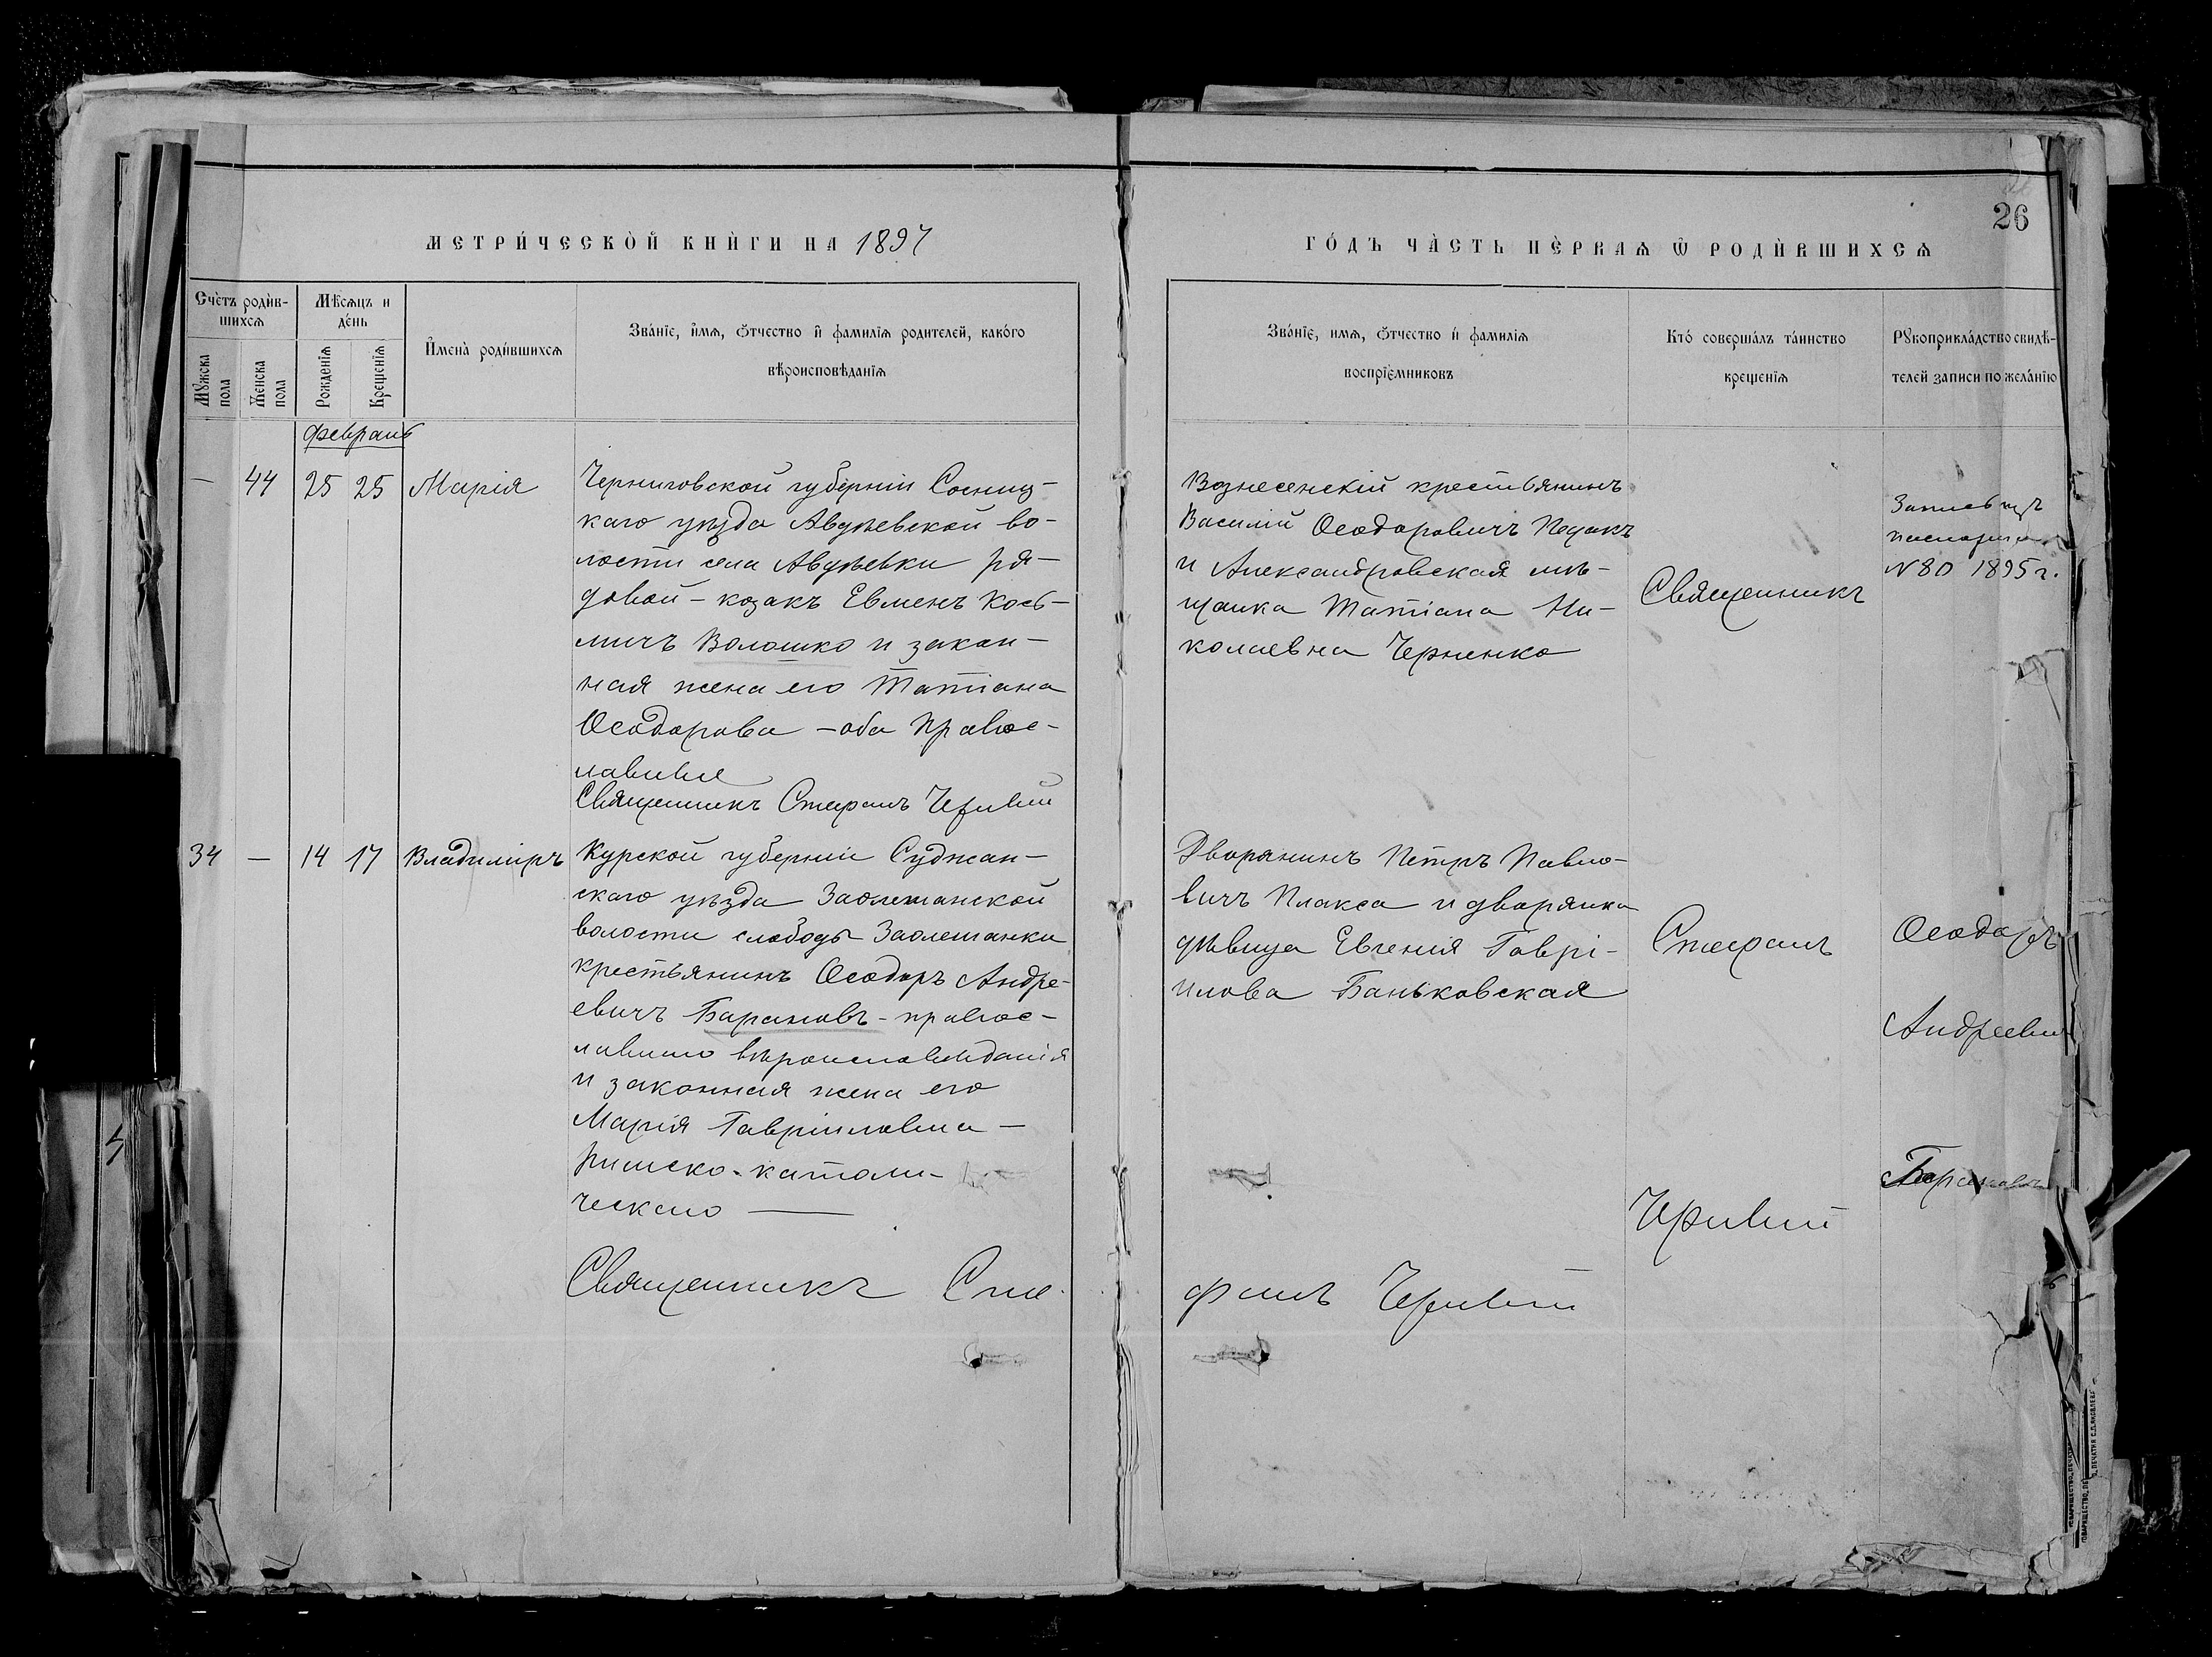 26
МЕТРИ́ЧЕСКО̀Й КНЍГИ НА 1897
ГО́ДЪ ЧА̀СТЬ ПЀРВАѦ Ѡ҆ РОДЍВШИХСѦ
Сче́тъ роди̋в-
шихсѧ
Мꙋ́жска
пола
Же́нска
пола
Мѣ́сѧцъ и
де́нь
Рожде́нїѧ
Креще́нїѧ
И҆мена̀ роди́вшихсѧ
Зва́нїе, и҆́мѧ, ѻ҆́тчество и҆ фами́лїѧ роди́телей, како́го
вѣроисповѣ́данїѧ
Зва́нїе, имѧ, ѻ҆́тчество и҆ фами́лїѧ
воспрїе́мниковъ
Кто́ соверша́лъ та́инство
креще́нїѧ
Рꙋкоприкла́дство свидѣ́-
телей записи по жела́нїю
Февраль
— 44 25 25 Марія
Черниговской губерніи Сосниц-
каго уѣзда Авдѣевской во-
лости села Авдѣевки ря-
довой - козакъ Евменъ Кось-
мичъ Волошко и закон-
ная жена его Татіана
Ѳеодорова - оба правос-
лавные
Священникъ Стефанъ Чернявій
Вознесенскій крестьянинъ
Василій Ѳеодоровичъ
и Александровская мѣ-
щанка Татіана Ни-
колаевна Черненко
Священникъ
Запись изъ
паспорта
№ 80 1895 г.
34 — 14 17 Владиміръ
Курской губерніи Суджан-
скаго уѣзда Заолешанской
волости слободы Заолешанки
крестьянинъ Ѳеодоръ Андре-
евичъ Барановъ - правос-
лавнаго вѣроисповѣданія
и законная жена его
Марія Гавріиловна -
римско-католи-
ческаго —
Дворянинъ Петръ Павло-
вичъ Плакса и дворянка
дѣвица Евгенія Гаврі-
илова Баньковская
Стефанъ
Ѳеодоръ
Андреевич
Барановъ
Священникъ Сте-
фанъ